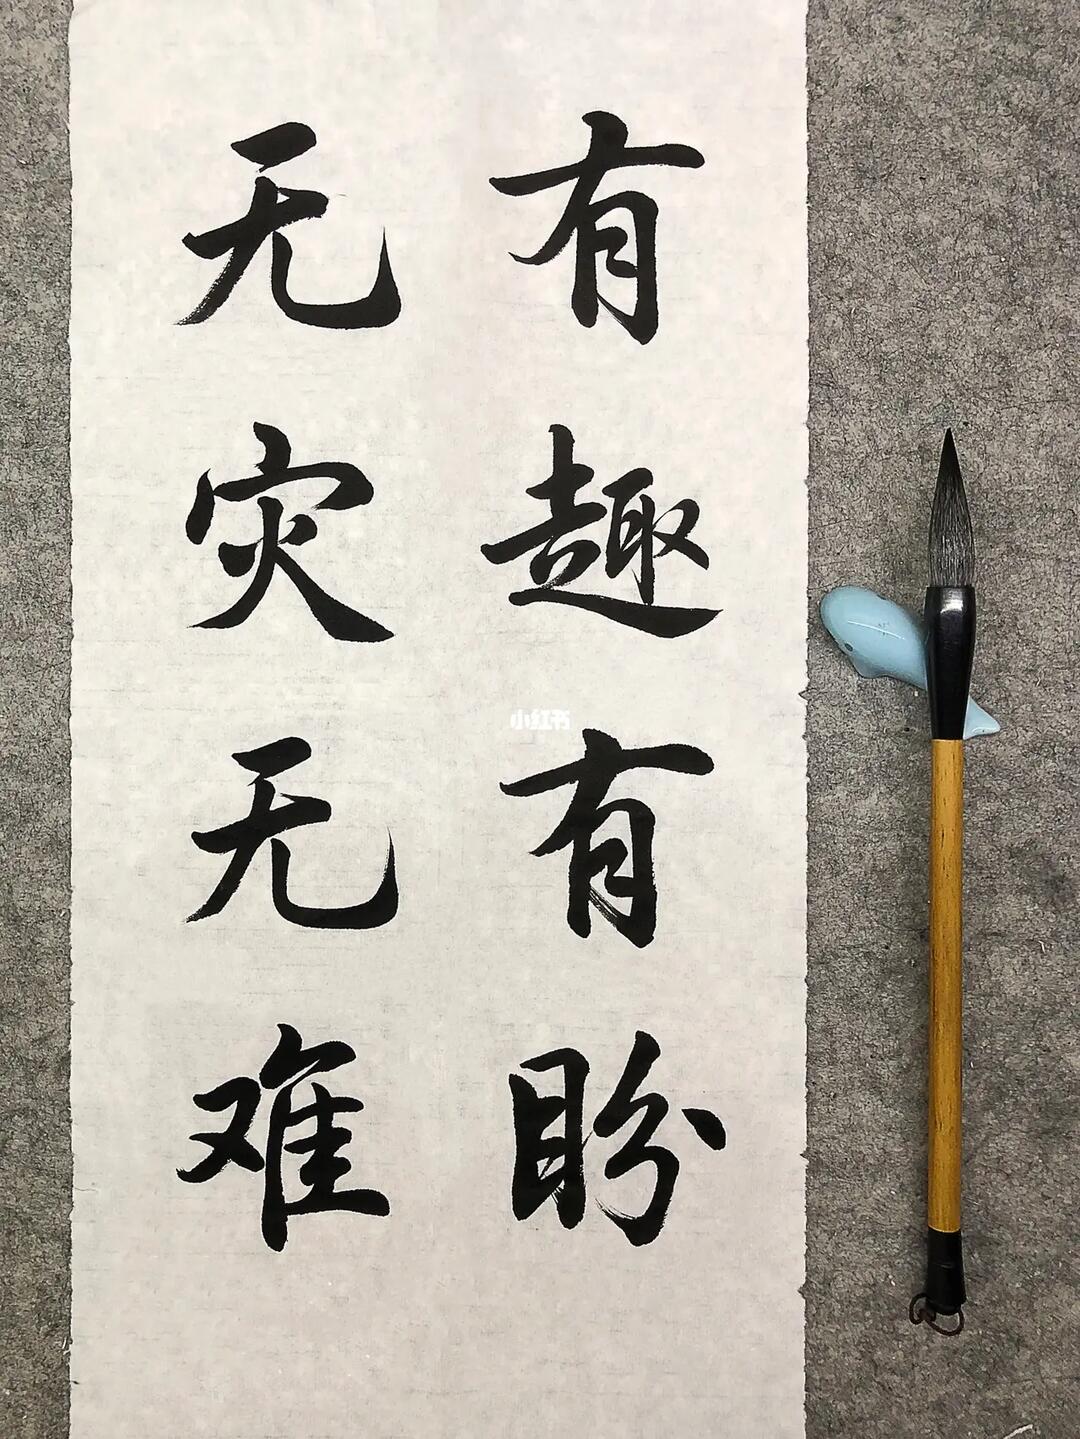 有趣有盼
无灾无难
小红书